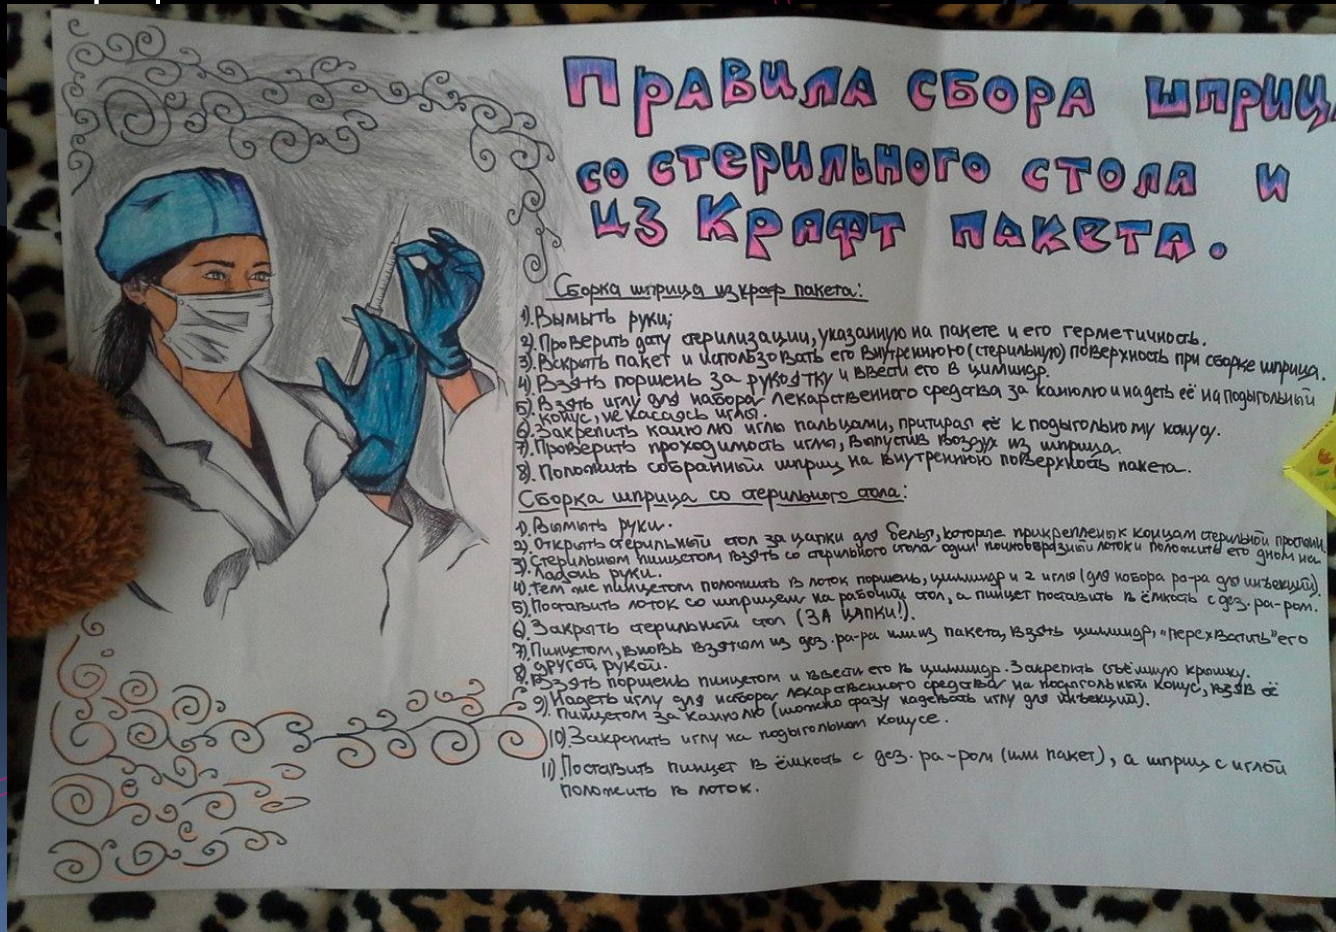 Правила сбора шприц
со стерильного стола и
из Крафт пакета.
Сборка шприца из краф пакета:
1). Вымыть руки;
2). Проверить дату стерилизации, указанную на пакете и его герметичность.
3). Вскрыть пакет и использовать его внутреннюю (стерильную) поверхность при сборке шприца.
4). Взять поршень за рукоятку и ввести его в цилиндр.
5). Взять иглу для набора лекарственного средства за канюлю и надеть её на подыгольный
конус, не касаясь иглы.
6). Закрепить канюлю иглы пальцами, притирая её к подыгольному конусу.
7). Проверить проходимость иглы, выпустив воздух из шприца.
8). Положить собранный шприц на внутреннюю поверхность пакета.
Сборка шприца со стерильного стола:
1). Вымыть руки.
2). Открыть стерильный стол за цапки для белья, которые прикреплены к концам стерильной простыни.
3). Стерильным пинцетом взять со стерильного стола один почкообразный лоток и положить его дном на
ладонь руки.
4). Тем же пинцетом положить в лоток поршень, цилиндр и 2 иглы (для набора ра-ра для инъекций).
5). Поставить лоток со шприцем на рабочий стол, а пинцет поставить в ёмкость с дез. ра-ром.
6). Закрыть стерильный стол (ЗА ЦАПКИ!).
7). Пинцетом, вновь взятым из дез. ра-ра или из пакета, взять цилиндр, "перехватить" его
другой рукой.
8). Взять поршень пинцетом и ввести его в цилиндр. Закрепить съёмную крышку.
9). Надеть иглу для набора лекарственного средства на подыгольный конус, взяв её
пинцетом за канюлю (можно сразу надевать иглу для инъекций).
10). Закрепить иглу на подыгольном конусе.
11). Поставить пинцет в ёмкость с дез. ра-ром (или пакет), а шприц с иглой
положить в лоток.